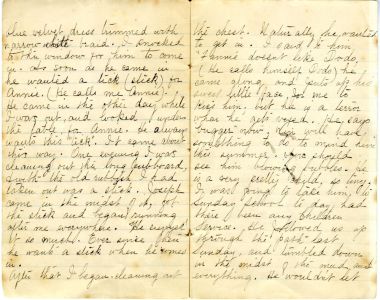 blue velvet dress trimmed with
narrow white braid. I knocked
at the window for him to come
in. As soon as he came in
he wanted a tick (stick) for
Annie. (He calls me Annie).
He came in the other day while
I was out, and looked under
the table for Annie. He always
wants this "tick". It came about
this way. One evening I was
cleaning out the long cupboard,
& with the old rubbish I had
taken out was a stick. Joseph
came in the midst of it, got
the stick and began running
after me everywhere. He enjoyed
it so much. Ever since then
he wants a stick when he comes
in.
After that I began cleaning out
the chest. Naturally he wanted
to get in. I said to him,
"Fannie doesn't like Dods,"
(he calls himself Dods) he
came along and put up his
sweet little face for me to
kiss him. but he is a terror
when he gets vexed. He says
bugger now, will have
something to do to mind him
this summer. You should
see him being bubbles. He
is a very pretty child, so tiny.
I was going to take him to
Sunday school to day, had
there been any children
service. He followed us up
through the path last
Sunday, and tumbled down
in the midst of the mud and
everything. He wouldn't let